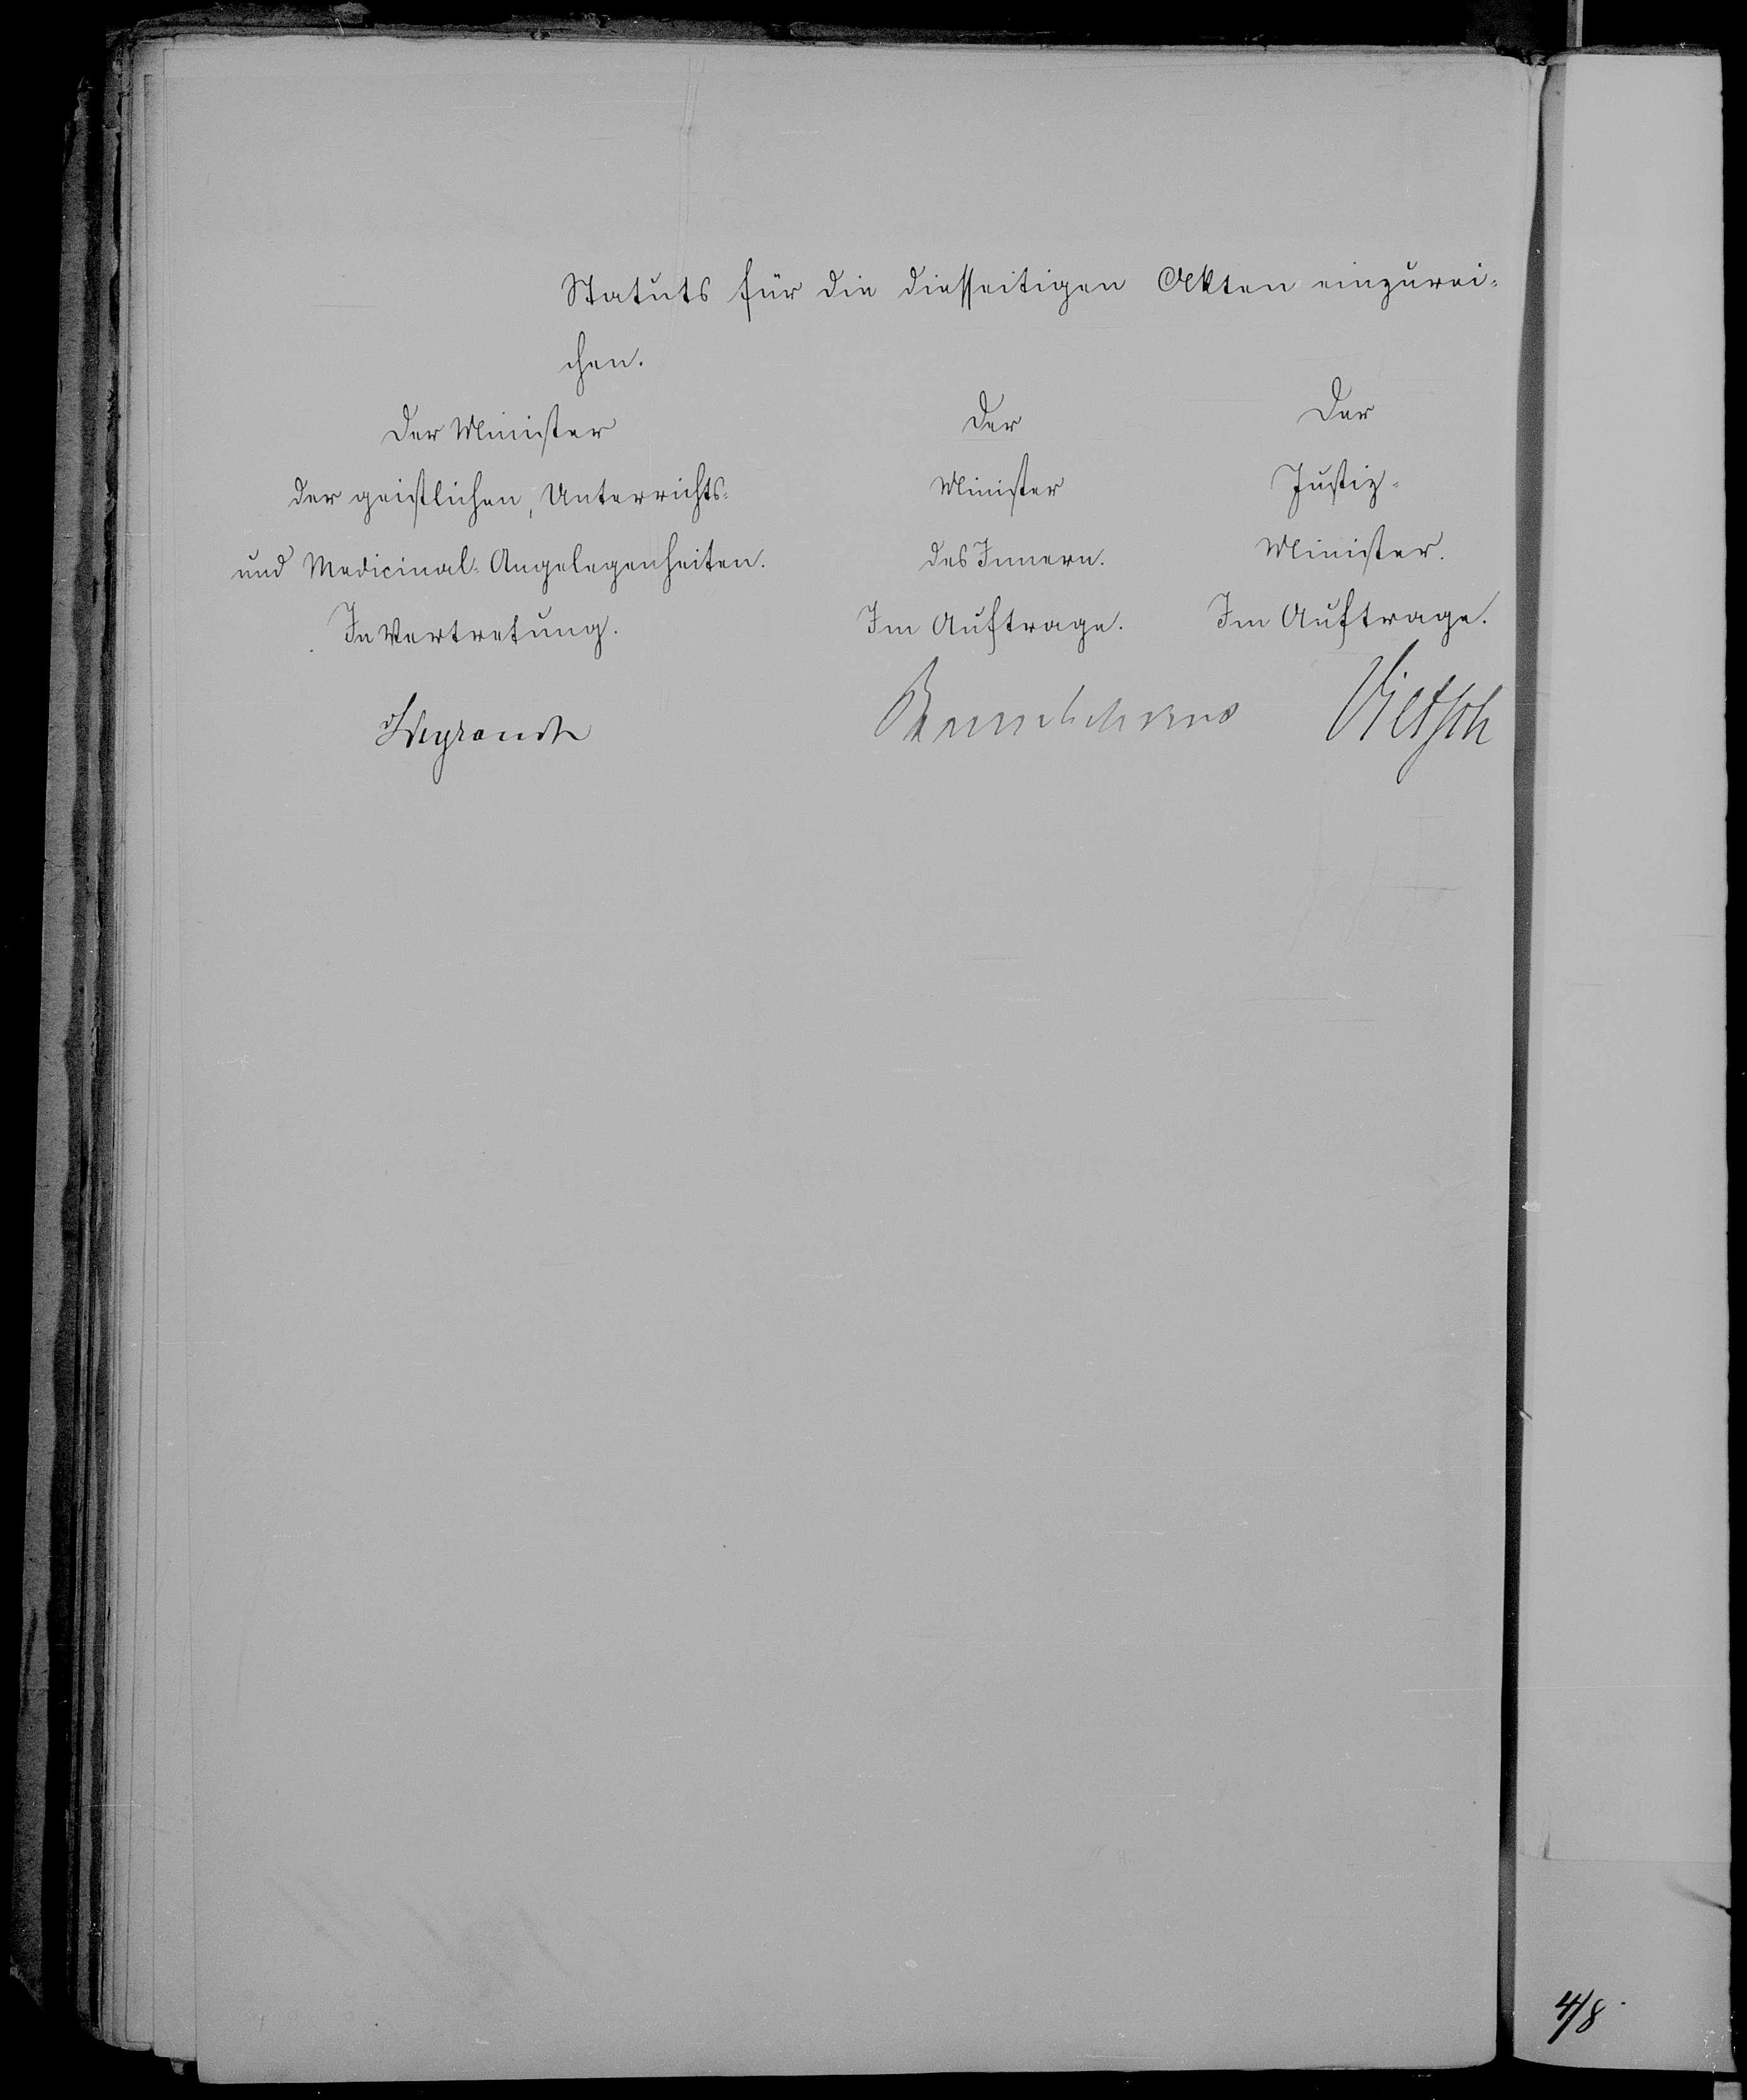 Statuts für die diesseitigen Akten einzurei-
chen.
Der Minister
der geistlichen, Unterrichts-
und Medicinal-Angelegenheiten.
In Vertretung.
Weyrauch
Der
Minister
des Innern.
Im Auftrage.
Der
Justiz-
Minister.
Im Auftrage.
Vietsch
4/8